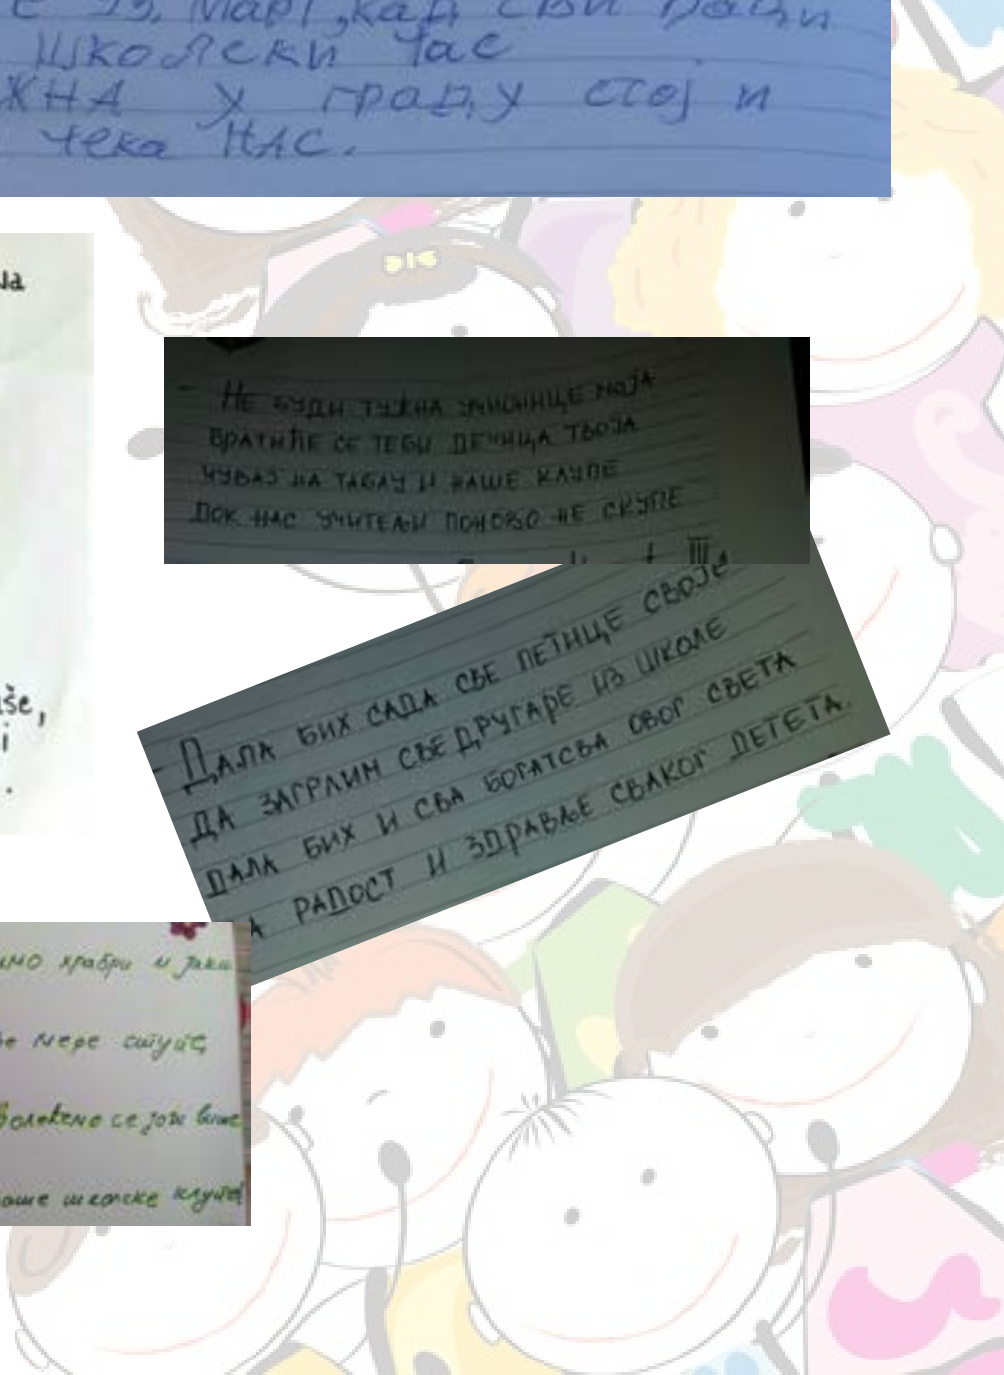 с 15. март, кад сви ђаци
школски час
ЖНА у граду стоји
чека НАС.
Ja
- НЕ БУДИ ТУЖНА УЧИОНИЦЕ МОЈА
ВРАТИЋЕ СЕ ТЕБИ ДЕЧИЦА ТВОЈА
ЧУВАЈ НА ТАБЛУ И НАШЕ КЛУПЕ
ДОК НАС УЧИТЕЉИ ПОНОВО НЕ СКУПЕ
III
- ДАЛА БИХ САДА СВЕ ПЕТИЦЕ СВОЈЕ
ДА ЗАГРЛИМ СВЕ ДРУГАРЕ ИЗ ШКОЛЕ
ДАЛА БИХ И СВА БОГАТСВА ОВОГ СВЕТА
А РАДОСТ И ЗДРАВЉЕ СВАКОГ ДЕТЕТА.
še,
i
.
имо храбри и јаки
е мере ситуте,
волећемо се још више
наше школске клупе